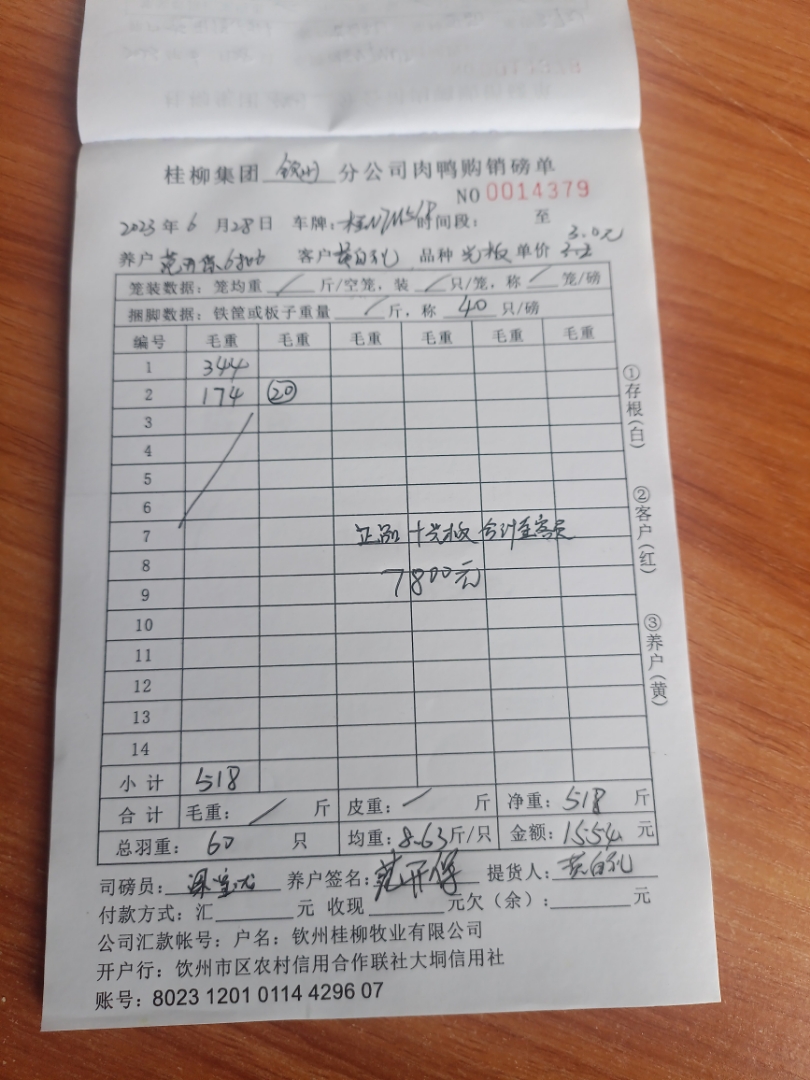 桂柳集团 钦州 分公司肉鸭购销磅单
NO 0014379
2023 年 6 月 28 日 车牌: 时间段: 至
3.0元
养户 客户 黄自礼 品种 光板 单价
笼装数据: 笼均重 / 斤/空笼, 装 / 只/笼, 称 / 笼/磅
捆脚数据: 铁筐或板子重量 / 斤, 称 40 只/磅
编号 毛重 毛重 毛重 毛重 毛重 毛重
1 344
2 174 ⑳
3
4
5
6
7
正品 十光板 合计
8
7800元
9
10
11
12
13
14
小计 518
合计 毛重: / 斤 皮重: / 斤 净重: 518 斤
总羽重: 60 只 均重: 8.63 斤/只 金额: 1554 元
司磅员: 养户签名: 范开保 提货人: 黄自礼
付款方式: 汇 元 收现 元欠(余): 元
公司汇款帐号: 户名: 钦州桂柳牧业有限公司
开户行: 饮州市区农村信用合作联社大垌信用社
账号: 8023 1201 0114 4296 07
①存根(白)
②客户(红)
③养户(黄)